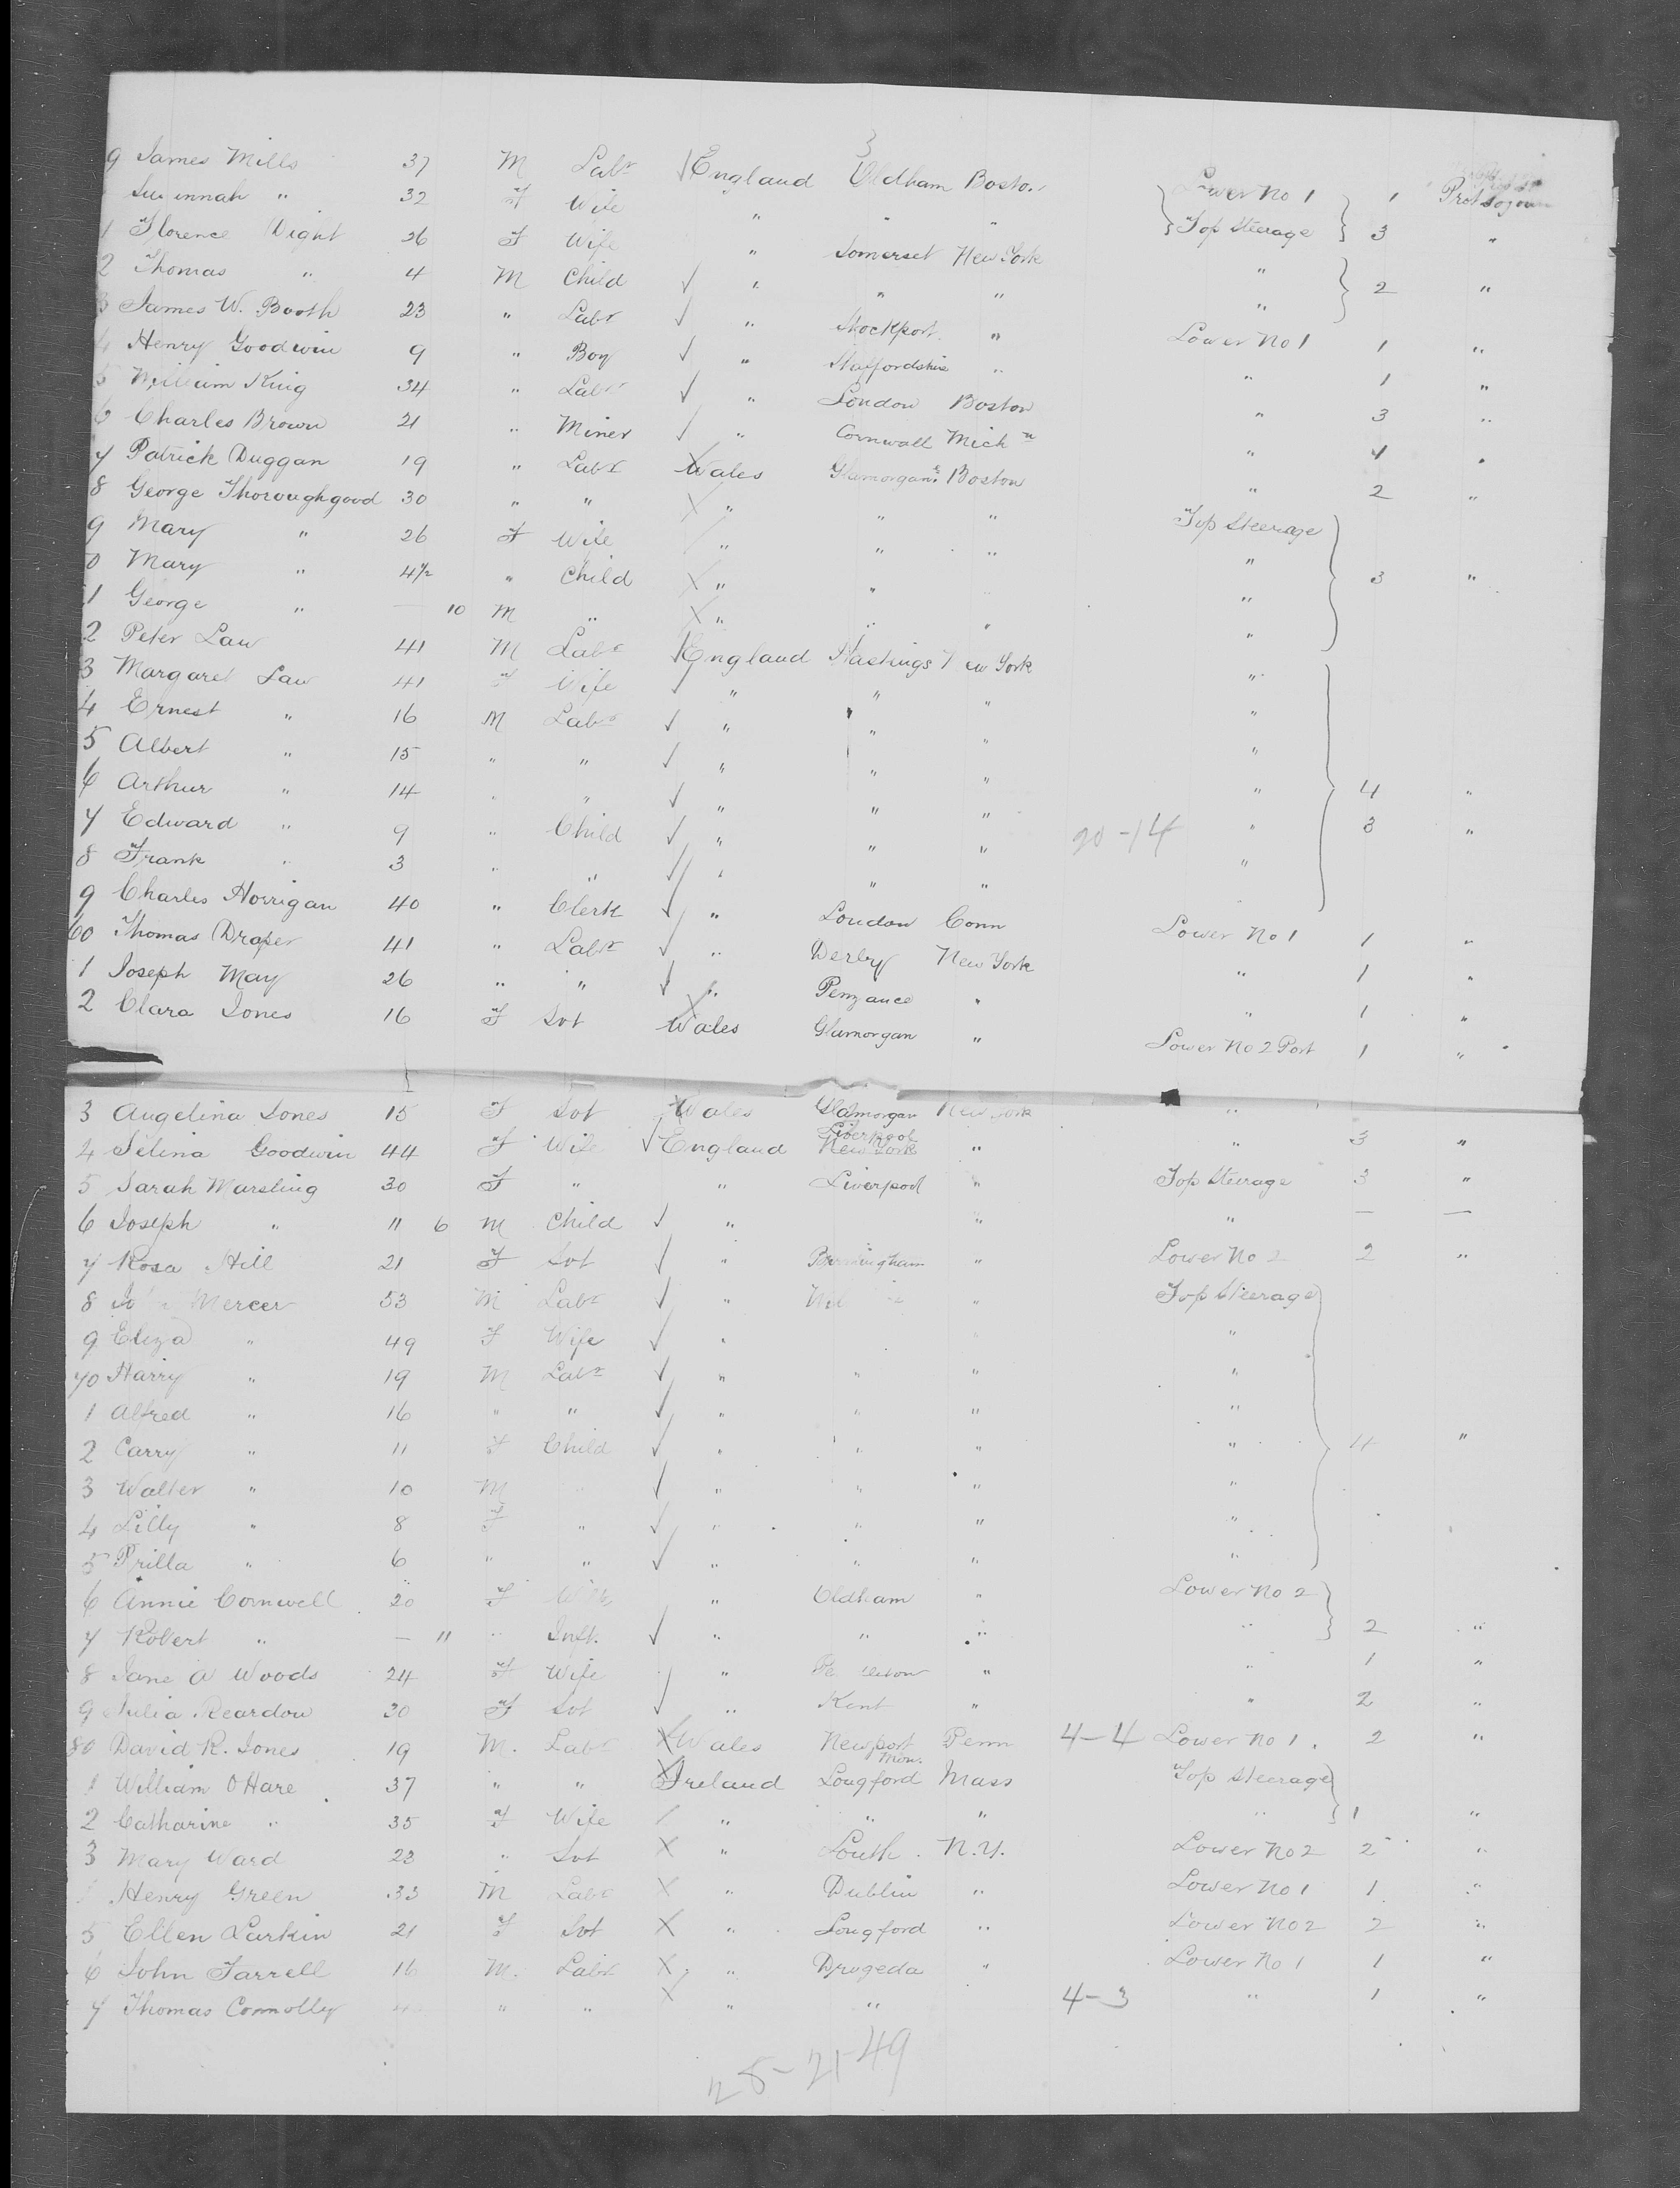 3
9 James Mills 37 M Labr England Oldham Lower No 1 1 Prot
" 32 F Wife " " " Top Steerage 3 "
1 Florence Dight 26 F Wife " Somerset New York "
2 Thomas " 4 M Child " " " " 2 "
3 James W. Booth 23 " Labr " Stockport " Lower No 1 1 "
4 Henry Goodwin 9 " Boy " Staffordshire " " 1 "
5 William King 34 " Labr " London Boston " 3 "
6 Charles Brown 21 " Miner " Cornwall Michn " 4 "
7 Patrick Duggan 19 " Labr Wales Glamorgans Boston " 2 "
8 George Thoroughgood 30 " " " " " Top Steerage
9 Mary " 26 F Wife " " " "
0 Mary " 4 1/2 " Child " " " 3 "
1 George " — 10 M " " " " "
2 Peter Law 41 M Labr England Hastings New York "
3 Margaret Law 41 F Wife " " " "
4 Ernest " 16 M Labr " " " "
5 Albert " 15 " " " " " "
6 Arthur " 14 " " " " " 4 "
7 Edward " 9 " Child " " " 20-14 " 3 "
8 Frank " 3 " " " " "
9 Charles Horrigan 40 " Clerk " London Conn Lower No 1 1 "
60 Thomas Draper 41 " Labr " Derby New York " 1 "
1 Joseph May 26 " " " Penzance " " 1 "
2 Clara Jones 16 F Svt Wales Glamorgan " Lower No 2 Port 1 "
3 Angelina Jones 15 F Svt Wales Glamorgan New York "
4 Selina Goodwin 44 F Wife England Liverpool New York " " 3 "
5 Sarah Marsling 30 F " " Liverpool " Top Steerage 3 "
6 Joseph " 11 6 M Child " " " — —
7 Rosa Hill 21 F Svt " Birmingham " Lower No 2 2 "
8 Mercer 53 M Labr " " Top Steerage
9 Eliza " 49 F Wife " "
70 Harry " 19 M Labr " " " "
1 Alfred " 16 " " " " " "
2 Carry " 11 F Child " " " " 4 "
3 Walter " 10 M " " " "
4 Lilly " 8 F " " " " "
5 Prilla " 6 " " " " " "
6 Annie Cornwell 20 F Wife " Oldham " Lower No 2
7 Robert " — 11 " Inft. " " " " 2 "
8 Jane A Woods 24 F Wife " " " 1 "
9 Julia Reardon 30 F Svt " Kent " " 2 "
80 David R. Jones 19 M. Labr Wales Newport Mon. Penn 4-4 Lower No 1. 2 "
1 William OHare 37 " " Ireland Longford Mass Top Steerage
2 Catharine " 35 F Wife " " " " 1 "
3 Mary Ward 23 " Svt " Louth. N.Y. Lower No 2 2 "
Henry Green 33 M Labr " Dublin " Lower No 1 1 "
5 Ellen Larkin 21 F Svt " Longford " Lower No 2 2 "
6 John Farrell 16 M. Labr " Drogeda " Lower No 1 1 "
7 Thomas Connolly " " " " 4-3 " 1 "
28-21-49